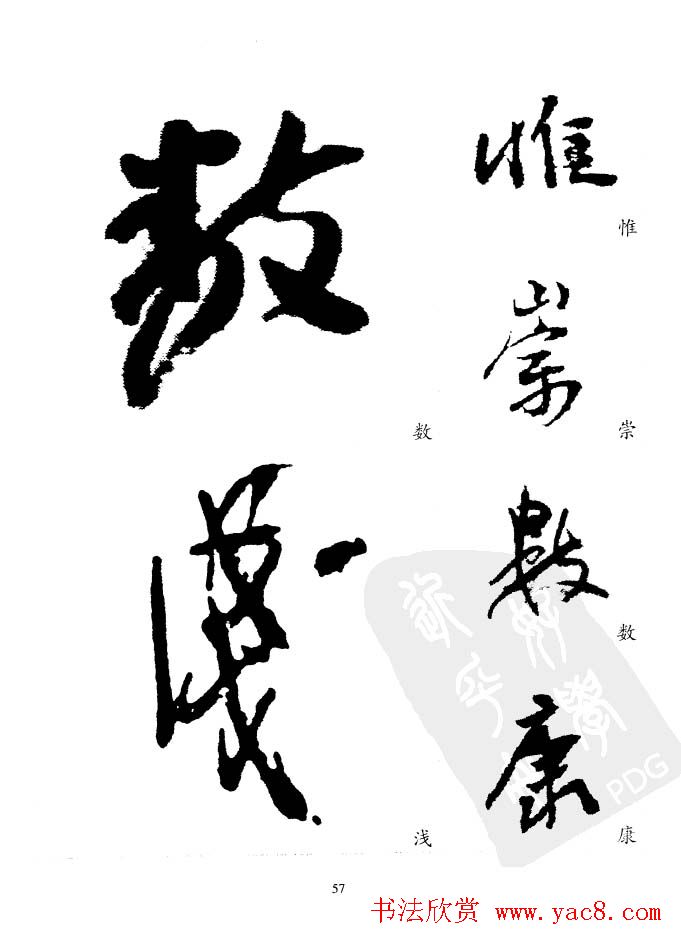 惟
惟
崇
崇
数
数
康
康
数
数
浅
浅
PDG
57
书法欣赏 www.yac8.com